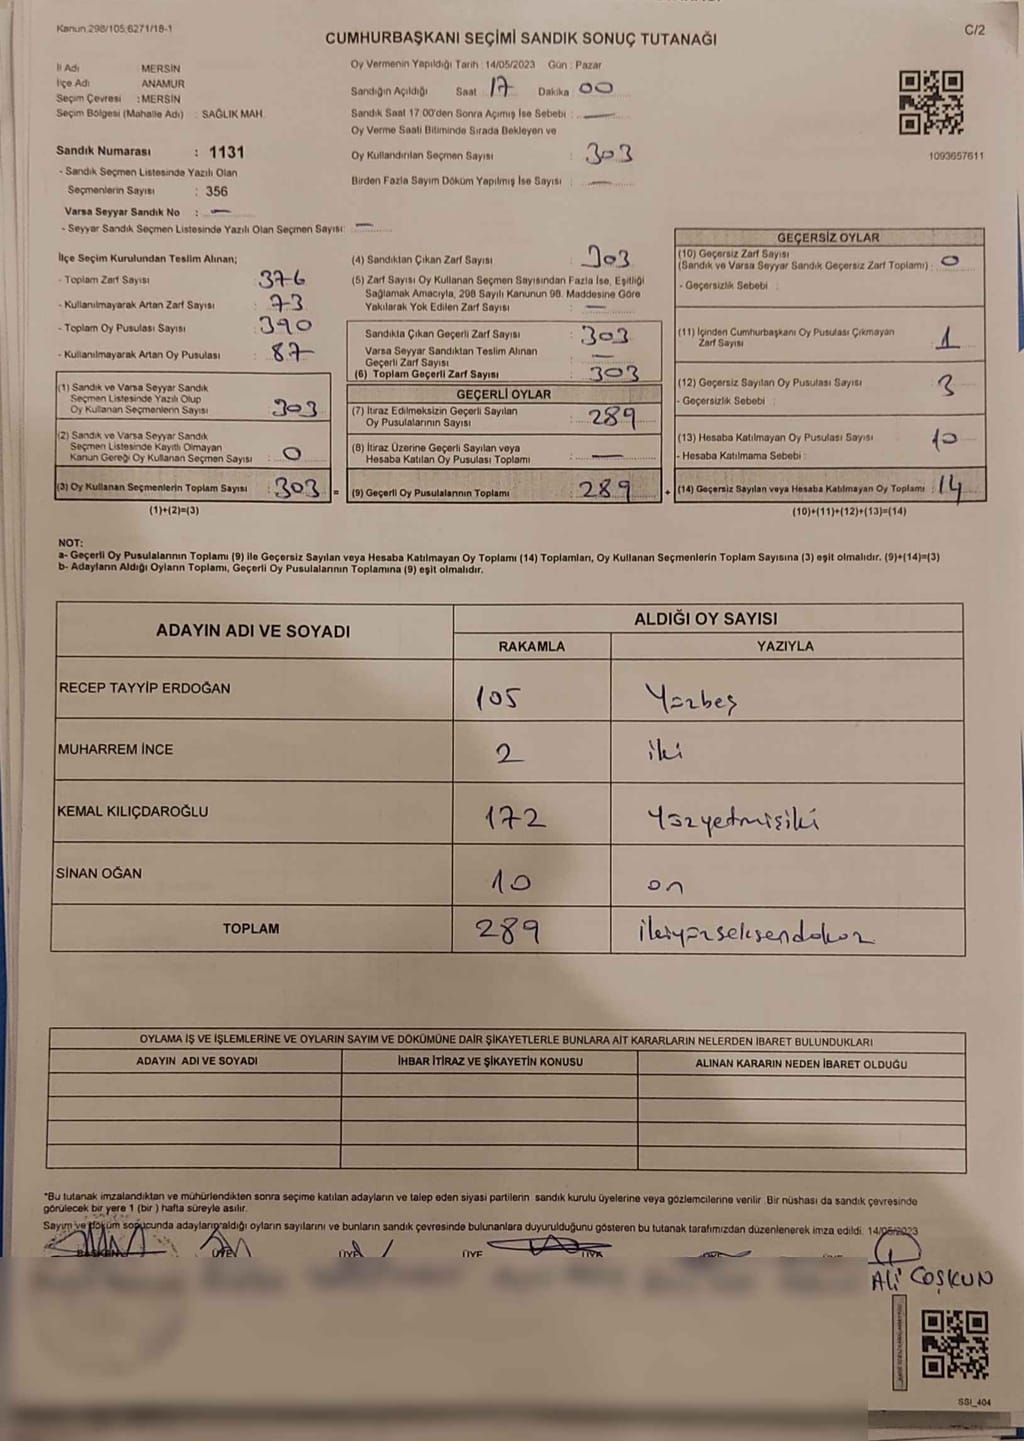 Kanun.298/105,6271/18-1
C/2
CUMHURBAŞKANI SEÇİMİ SANDIK SONUÇ TUTANAĞI
İl Adı MERSİN
İlçe Adı ANAMUR
Seçim Çevresi : MERSİN
Seçim Bölgesi (Mahalle Adı) : SAĞLIK MAH.
Oy Vermenin Yapıldığı Tarih : 14/05/2023 Gün : Pazar
Sandığın Açıldığı Saat 17 Dakika 00
Sandık Saat 17.00'den Sonra Açımış İse Sebebi : —
Oy Verme Saati Bitiminde Sırada Bekleyen ve
Oy Kullandırılan Seçmen Sayısı : 303
Birden Fazla Sayım Döküm Yapılmış İse Sayısı : —
1093657611
Sandık Numarası : 1131
- Sandık Seçmen Listesinde Yazılı Olan
Seçmenlerin Sayısı : 356
Varsa Seyyar Sandık No : —
- Seyyar Sandık Seçmen Listesinde Yazılı Olan Seçmen Sayısı: —
İlçe Seçim Kurulundan Teslim Alınan;
- Toplam Zarf Sayısı : 376
- Kullanılmayarak Artan Zarf Sayısı : 73
- Toplam Oy Pusulası Sayısı : 390
- Kullanılmayarak Artan Oy Pusulası : 87
(1) Sandık ve Varsa Seyyar Sandık
Seçmen Listesinde Yazılı Olup
Oy Kullanan Seçmenlerin Sayısı : 303
(2) Sandık ve Varsa Seyyar Sandık
Seçmen Listesinde Kayıtlı Olmayan
Kanun Gereği Oy Kullanan Seçmen Sayısı : 0
(3) Oy Kullanan Seçmenlerin Toplam Sayısı : 303 =
(1)+(2)=(3)
(4) Sandıktan Çıkan Zarf Sayısı : 303
(5) Zarf Sayısı Oy Kullanan Seçmen Sayısından Fazla İse, Eşitliği
Sağlamak Amacıyla, 298 Sayılı Kanunun 98. Maddesine Göre
Yakılarak Yok Edilen Zarf Sayısı : —
Sandıkta Çıkan Geçerli Zarf Sayısı : 303
Varsa Seyyar Sandıktan Teslim Alınan
Geçerli Zarf Sayısı : —
(6) Toplam Geçerli Zarf Sayısı : 303
GEÇERLİ OYLAR
(7) İtiraz Edilmeksizin Geçerli Sayılan
Oy Pusulalarının Sayısı : 289
(8) İtiraz Üzerine Geçerli Sayılan veya
Hesaba Katılan Oy Pusulası Toplamı : —
(9) Geçerli Oy Pusulalarının Toplamı : 289 +
GEÇERSİZ OYLAR
(10) Geçersiz Zarf Sayısı
(Sandık ve Varsa Seyyar Sandık Geçersiz Zarf Toplamı) : 0
- Geçersizlik Sebebi :
(11) İçinden Cumhurbaşkanı Oy Pusulası Çıkmayan
Zarf Sayısı : 1
(12) Geçersiz Sayılan Oy Pusulası Sayısı : 3
- Geçersizlik Sebebi :
(13) Hesaba Katılmayan Oy Pusulası Sayısı : 10
- Hesaba Katılmama Sebebi :
(14) Geçersiz Sayılan veya Hesaba Katılmayan Oy Toplamı : 14
(10)+(11)+(12)+(13)=(14)
NOT:
a- Geçerli Oy Pusulalarının Toplamı (9) ile Geçersiz Sayılan veya Hesaba Katılmayan Oy Toplamı (14) Toplamları, Oy Kullanan Seçmenlerin Toplam Sayısına (3) eşit olmalıdır. (9)+(14)=(3)
b- Adayların Aldığı Oyların Toplamı, Geçerli Oy Pusulalarının Toplamına (9) eşit olmalıdır.
ADAYIN ADI VE SOYADI ALDIĞI OY SAYISI
RAKAMLA YAZIYLA
RECEP TAYYİP ERDOĞAN 105 Yüzbeş
MUHARREM İNCE 2 iki
KEMAL KILIÇDAROĞLU 172 Yüzyetmişiki
SİNAN OĞAN 10 on
TOPLAM 289 ikiyüzseksendokuz
OYLAMA İŞ VE İŞLEMLERİNE VE OYLARIN SAYIM VE DÖKÜMÜNE DAİR ŞİKAYETLERLE BUNLARA AİT KARARLARIN NELERDEN İBARET BULUNDUKLARI
ADAYIN ADI VE SOYADI İHBAR İTİRAZ VE ŞİKAYETİN KONUSU ALINAN KARARIN NEDEN İBARET OLDUĞU
*Bu tutanak imzalandıktan ve mühürlendikten sonra seçime katılan adayların ve talep eden siyasi partilerin sandık kurulu üyelerine veya gözlemcilerine verilir. Bir nüshası da sandık çevresinde
görülecek bir yere 1 (bir ) hafta süreyle asılır.
Sayım ve döküm sonucunda adayların aldığı oyların sayılarını ve bunların sandık çevresinde bulunanlara duyurulduğunu gösteren bu tutanak tarafımızdan düzenlenerek imza edildi. 14/05/2023
BAŞKAN ÜYE ÜYE ÜYE ÜYE
Ali COŞKUN
SSI_404